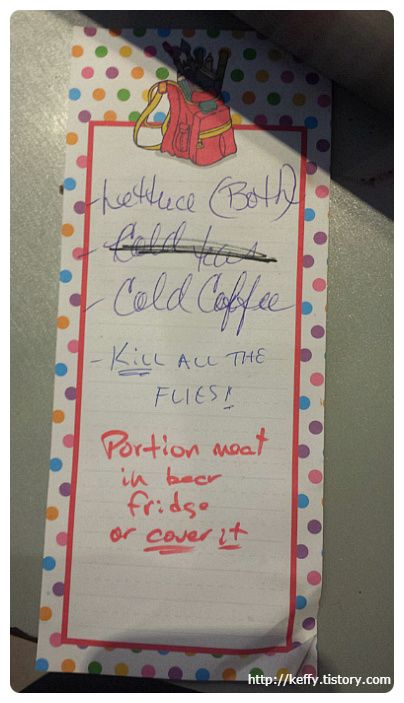 - Lettuce (Both)
- Cold tea
- Cold Coffee
- KILL ALL THE
FLIES!
Portion meat
in beer
fridge
or cover it
http://keffy.tistory.com